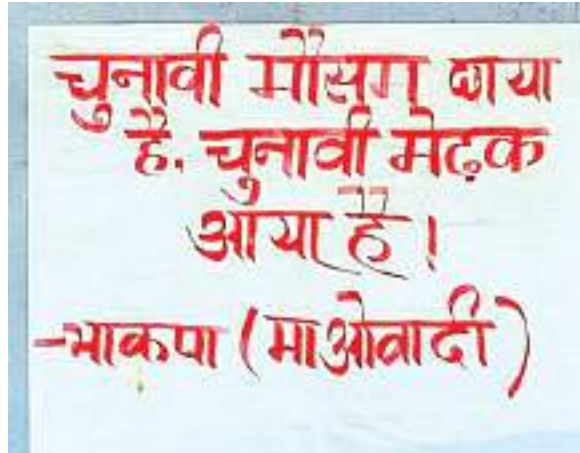 चुनावी मौसम छाया
है, चुनावी मेढ़क
आया है।
-भाकपा (माओवादी)